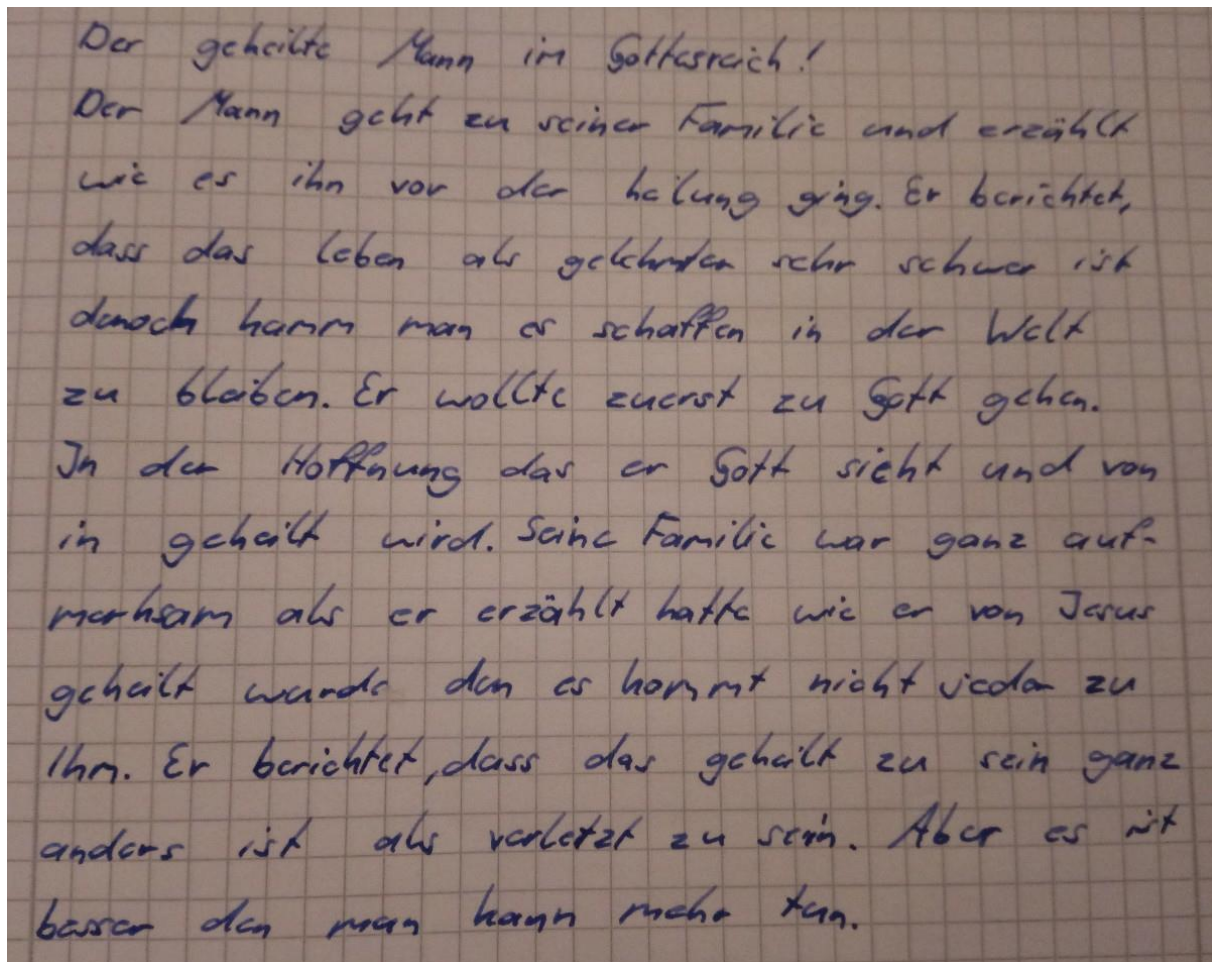 Der geheilte Mann im Gottesreich!
Der Mann geht zu seiner Familie und erzählt
wie es ihn vor der heilung ging. Er berichtet,
dass das leben als gelehmter sehr schwer ist
denoch kamm man es schaffen in der Welt
zu bleiben. Er wollte zuerst zu Gott gehen.
In der Hoffnung das er Gott sieht und von
in geheilt wird. Seine Familie war ganz auf-
merksam als er erzählt hatte wie er von Jesus
geheilt wurde den es kommt nicht jeder zu
Ihm. Er berichtet, dass das geheilt zu sein ganz
anders ist als verletzt zu sein. Aber es ist
besser den man kann mehr tun.